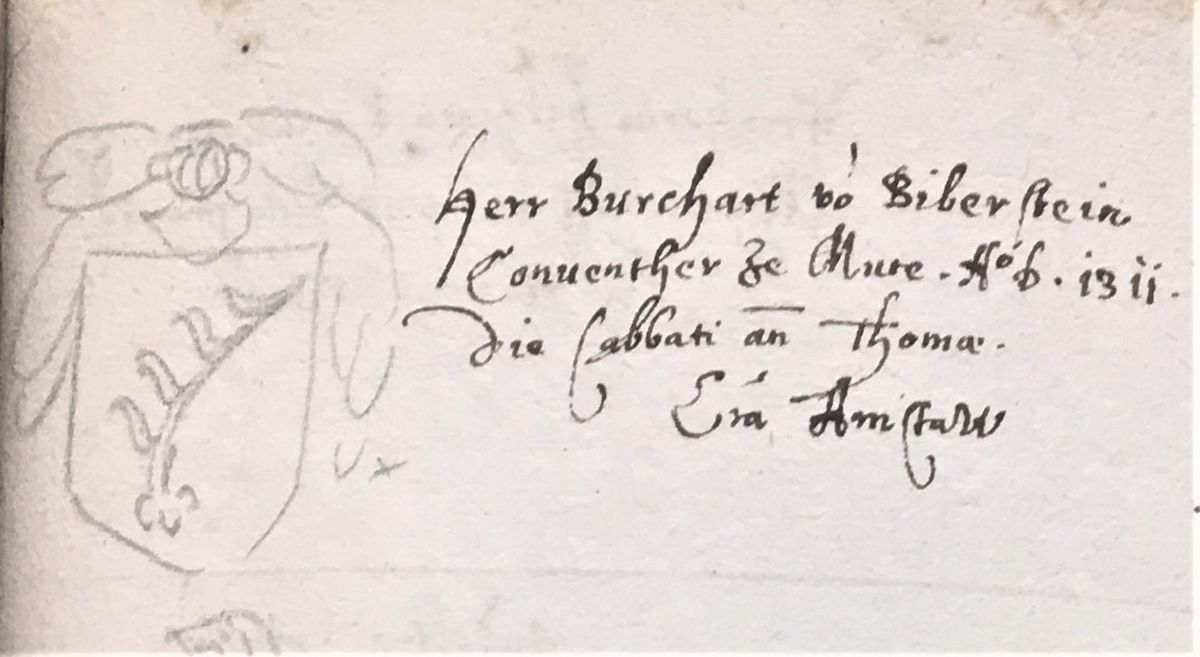 Herr Burchart vō Biberstein
Conuenther ze Mure . Aº d. 1311.
Die Sabbati an̄ Thomæ.
Crā Amstaw
Ux